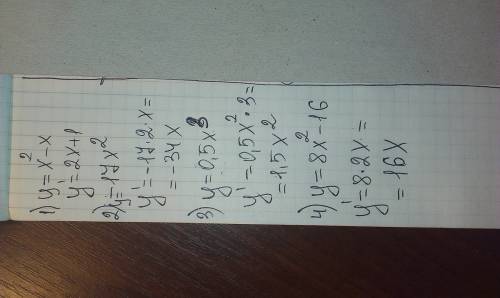 1) y = x² - x
y' = 2x + 1
2) y = -17x²
y' = -17·2·x =
= -34x
3) y = 0,5x³
y' = 0,5x²·3 =
= 1,5x²
4) y = 8x² - 16
y' = 8·2x =
= 16x